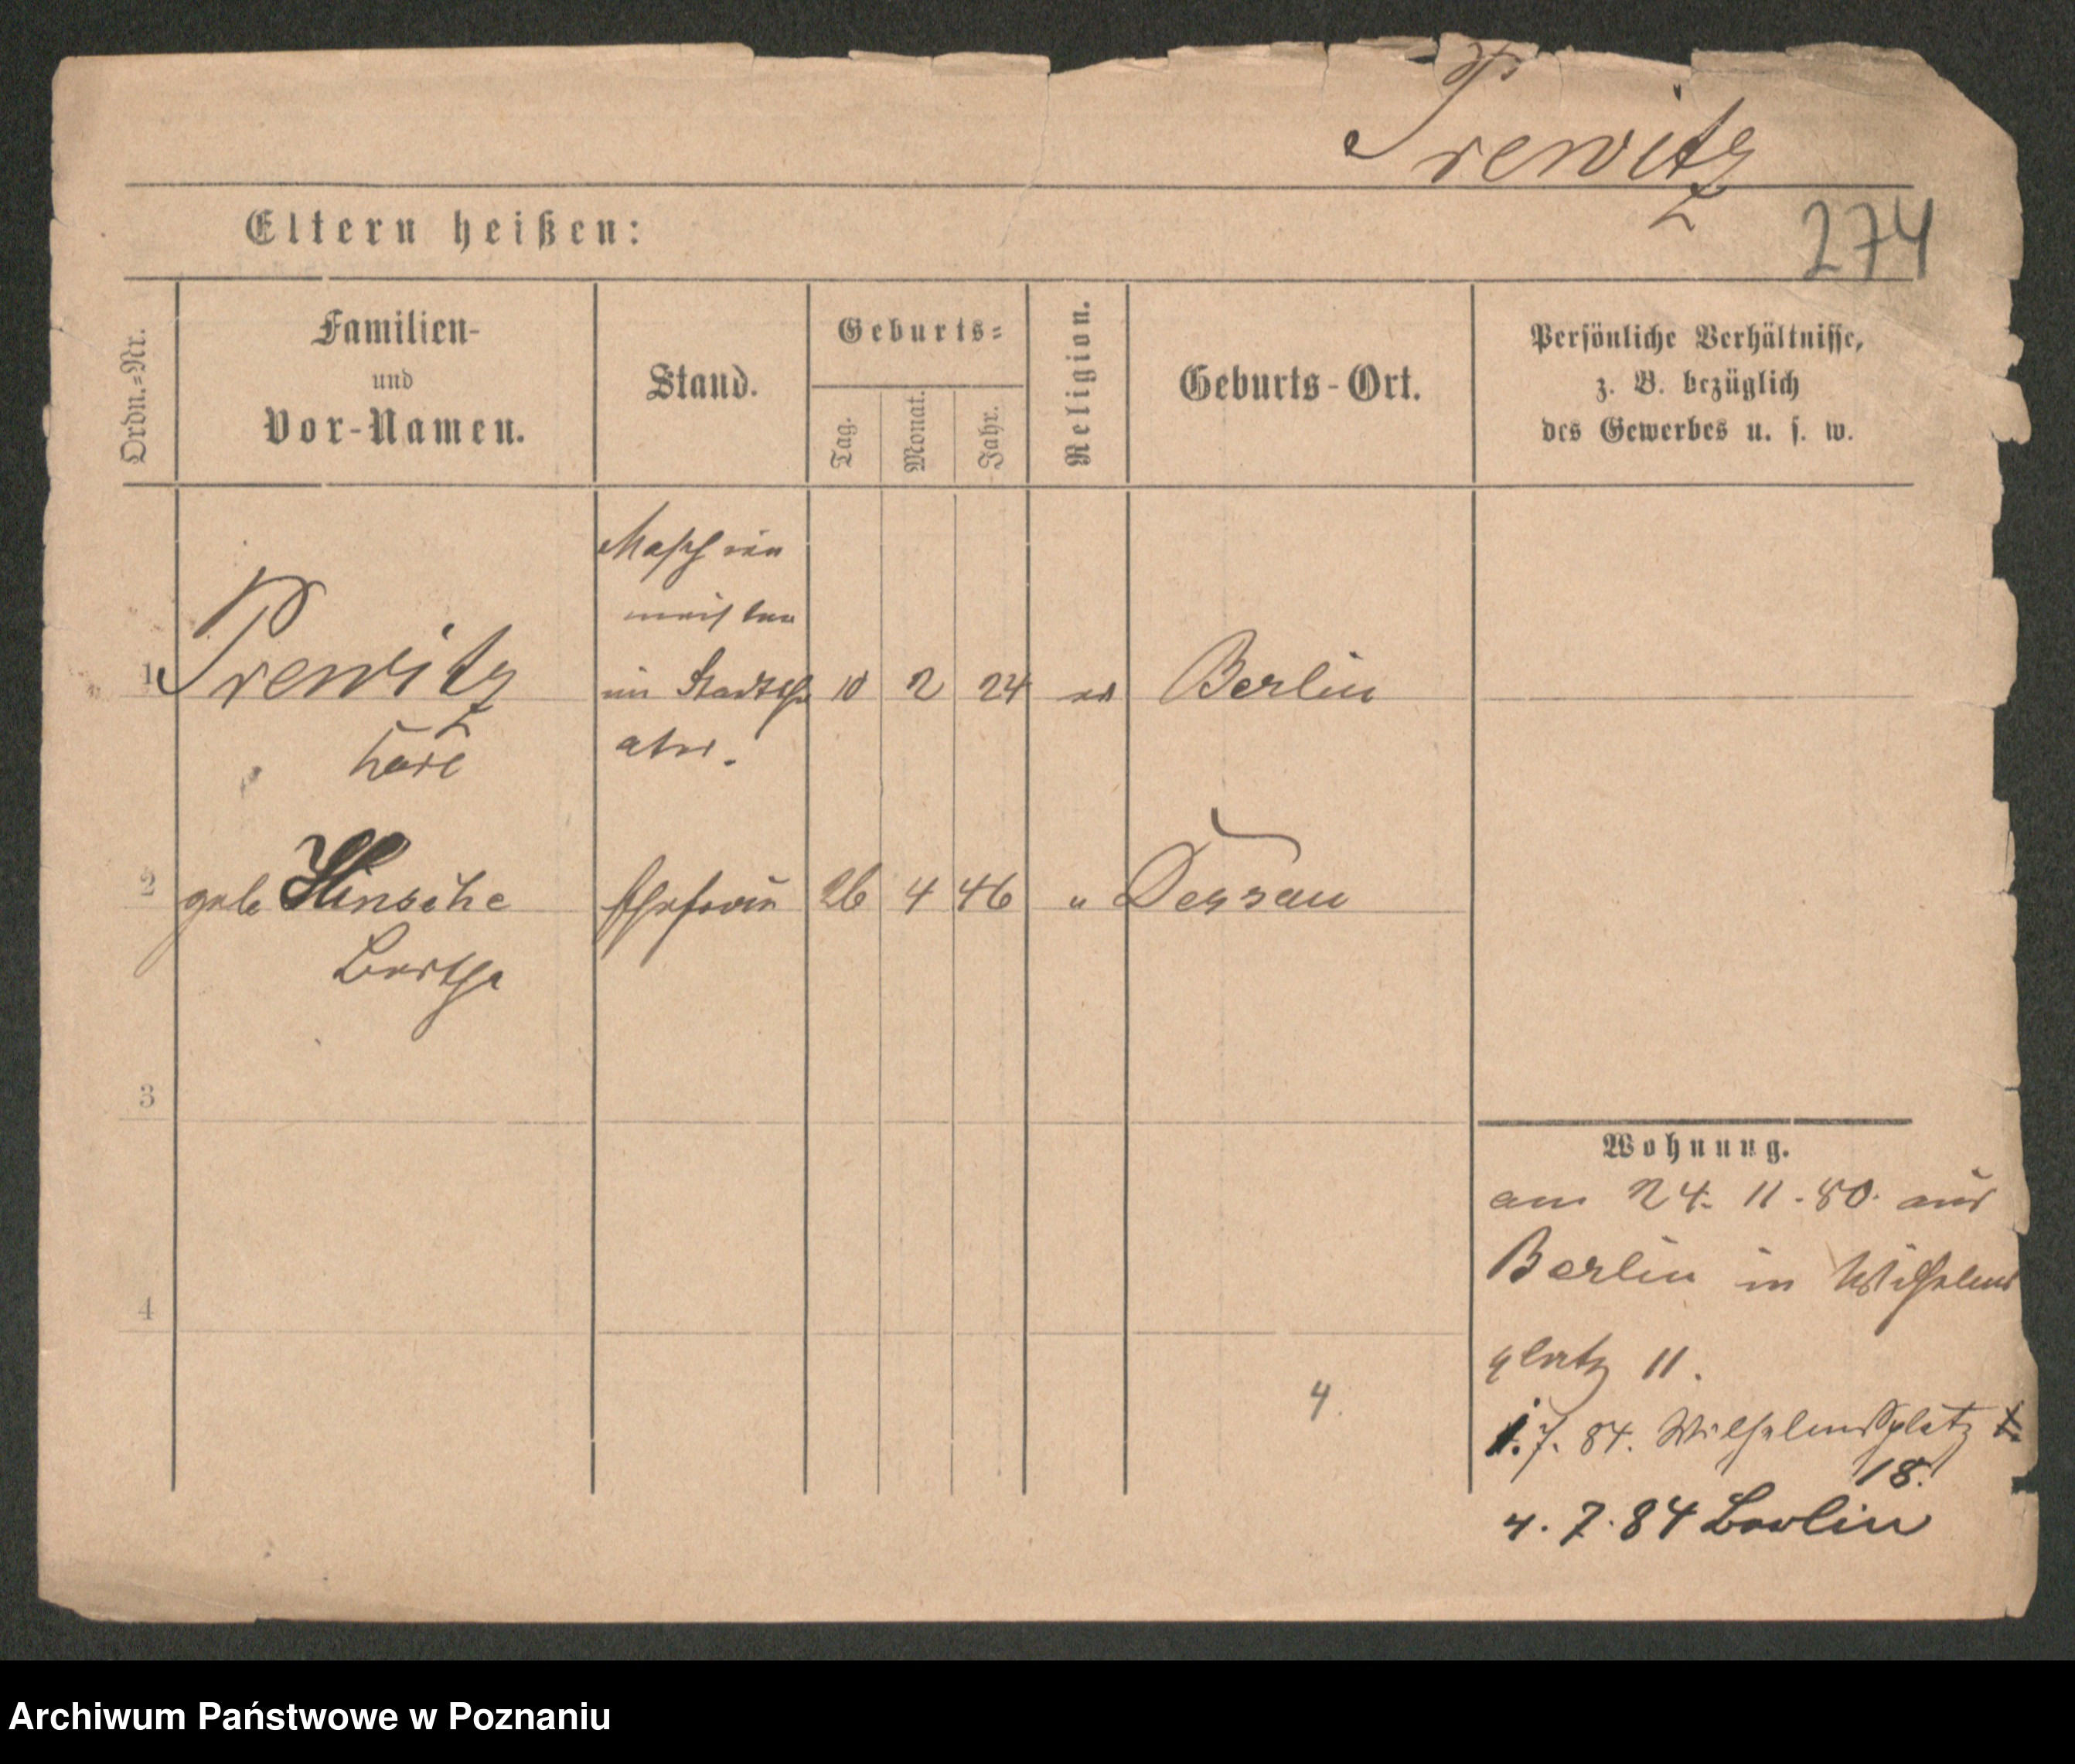 Prewitz
274
Eltern heißen:
Ordn.=Nr.
Familien-
und
Vor-Namen.
Stand.
Geburts=
Tag.
Monat.
Jahr.
Religion.
Geburts-Ort.
Persönliche Verhältnisse,
z. B. bezüglich
des Gewerbes u. s. w.
Maschin
meister
1 Prewitz im Stadtthe 10 2 24 ev Berlin
Karl ater.
2 geb Hinsche Ehefrau 26 4 46 " Dessau
Bertha
3
4
Wohnung.
am 24. 11. 80. aus
Berlin in Wilhelms
platz 11.
4
1. 7. 84. Wilhelmsplatz
18.
4. 7. 84 Berlin
Archiwum Państwowe w Poznaniu